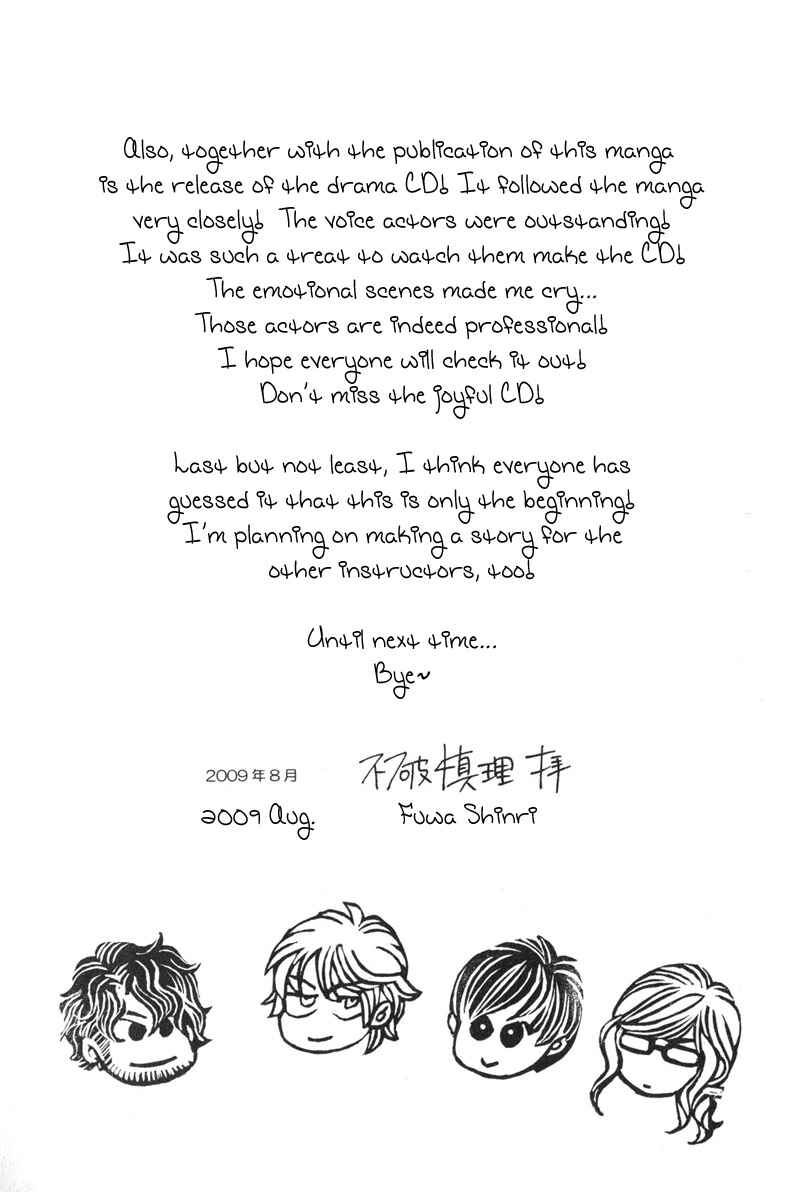 Also, together with the publication of this manga
is the release of the drama CD! It followed the manga
very closely! The voice actors were outstanding!
It was such a treat to watch them make the CD!
The emotional scenes made me cry...
Those actors are indeed professional!
I hope everyone will check it out!
Don't miss the joyful CD!
Last but not least, I think everyone has
guessed it that this is only the beginning!
I'm planning on making a story for the
other instructors, too!
Until next time...
Bye~
2009年8月 不破慎理 拝
2009 Aug. Fuwa Shinri